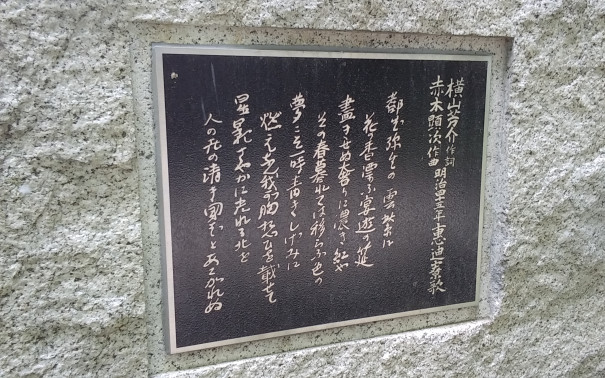 横山芳介作詞
赤木顕次作曲 明治四十五年恵迪寮歌
都ぞ弥生の雲紫に
花の香漂ふ宴遊の筵
盡きせぬ奢りに濃き紅や
その春暮れては移らふ色の
夢こそ一時青きしげみに
燃えなん我胸想ひを載せて
星影さやかに光れる北を
人の世の清き國ぞとあこがれぬ